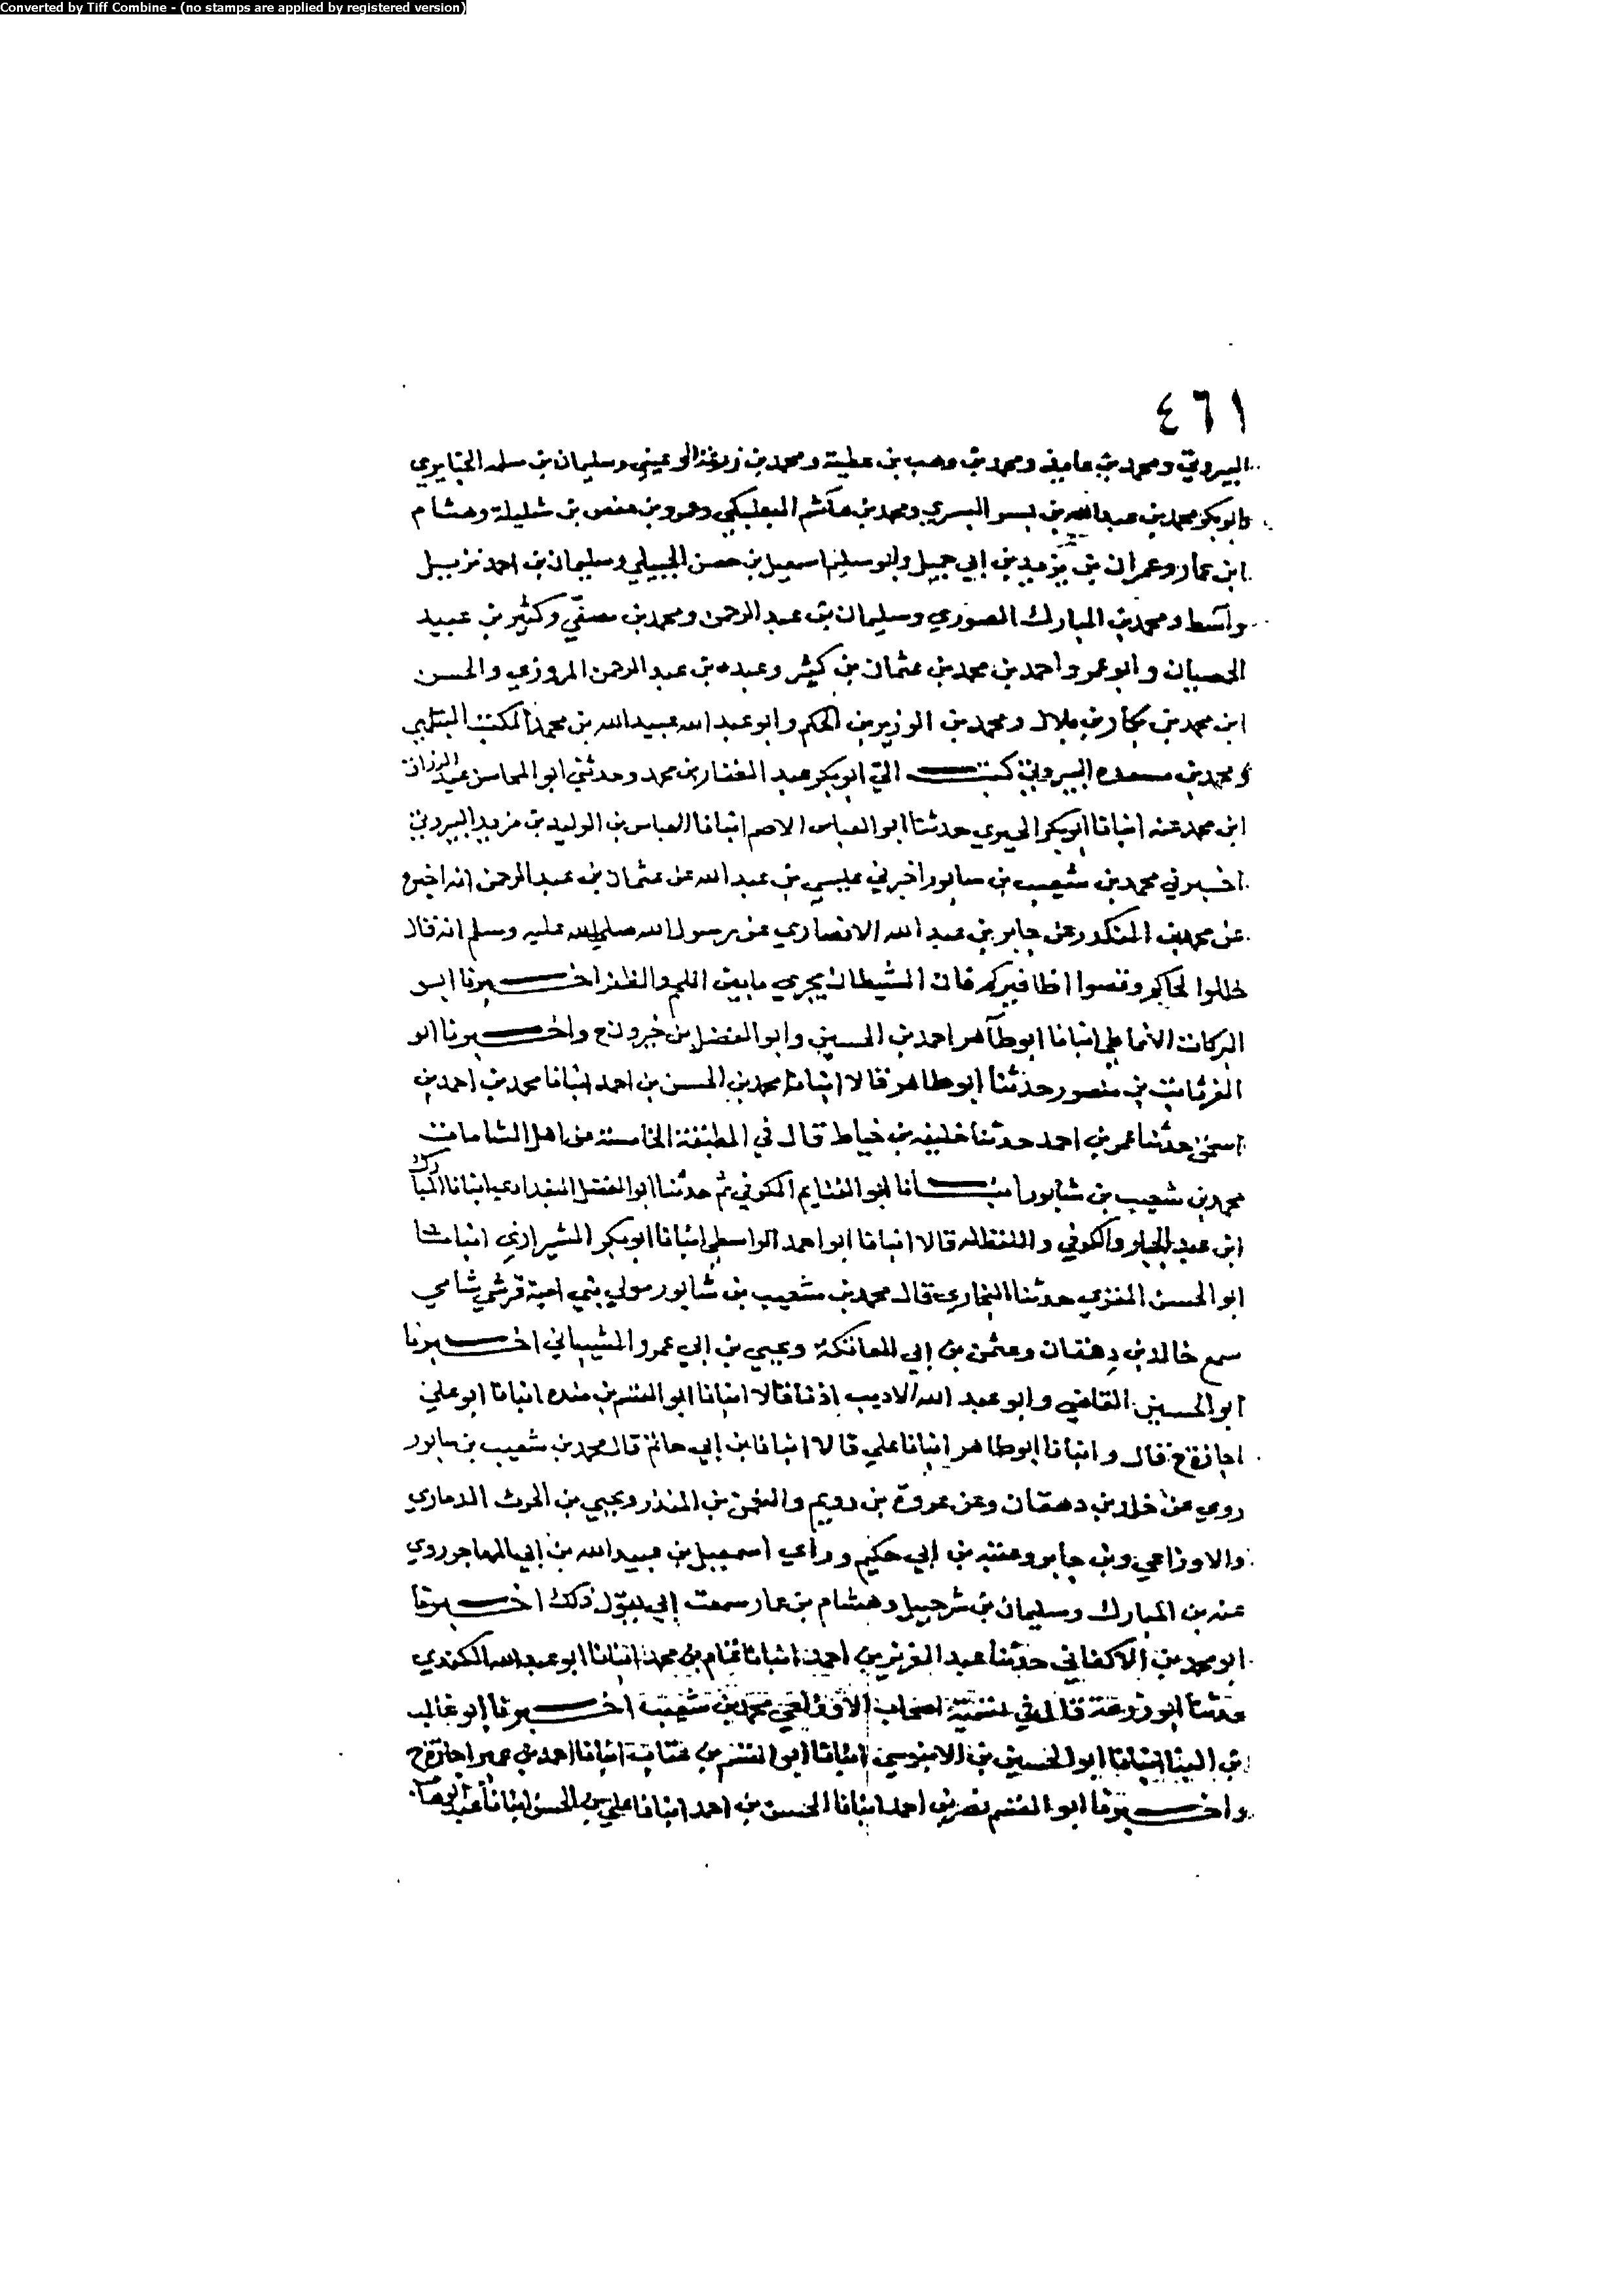 Converted by Tiff Combine - (no stamps are applied by registered version)
٤٦١
البيروتي ومحمد بن عايذ ومحمد بن وهب بن عطية ومحمد بن زرعة الرعيني وسليمان بن سلمه الخبايري
وابو بكر محمد بن عبد الله بن بسر البسري ومحمد بن هاشم البعلبكي وعمرو بن حفص بن شليلة وهشام
ابن عمار وعمران بن يزيد بن ابي جميل وابو سليم اسمعيل بن حصن الجبيلي وسليمان بن احمد نزيل
واسط ومحمد بن المبارك الصوري وسليمان بن عبد الرحمن ومحمد بن مصفي وكثير بن عبيد
الحمصيان وابو عمرو احمد بن محمد بن عثمان بن كثير وعبده بن عبد الرحمن المروزي والحسن
ابن محمد بن بكار بن بلال ومحمد بن الوزير بن الحكم وابو عبد الله عبيد الله بن محمد المكتب
ومحمد بن مسعده البيروتي كتب الي ابو بكر عبد الغفار بن محمد وحدثني ابو المحاسن عبد الرزاق
ابن محمد عنه انبانا ابو بكر الحيري حدثنا ابو العباس الاصم انبانا العباس بن الوليد بن مزيد البيروتي
اخبرني محمد بن شعيب بن سابور اخبرني عيسي بن عبد الله عن عثمان بن عبد الرحمن انه اخبره
عن محمد بن المنكدر عن جابر بن عبد الله الانصاري عن رسول الله صلي الله عليه وسلم انه قال
خللوا لحاكم وقصوا اظافيركم فان الشيطان يجري ما بين اللحم والظفر اخبرنا ابو
البركات الانماطي انبانا ابو طاهر احمد بن الحسين وابو الفضل بن خيرون ح واخبرنا ابو
العز ثابت بن منصور حدثنا ابو طاهر قالا انبانا محمد بن الحسن بن احمد انبانا محمد بن احمد بن
اسحق حدثنا عمر بن احمد حدثنا خليفه بن خياط قال في الطبقة الخامسة من اهل الشامات
محمد بن شعيب بن شابور انبانا ابو الغنايم الكوفي ثم حدثنا ابو الفضل البغدادي انبانا المبارك
ابن عبد الجبار والكوفي واللفظ له قالا انبانا ابو احمد الواسطي انبانا ابو بكر الشيرازي انبانا
ابو الحسن المقري حدثنا البخاري قال محمد بن شعيب بن شابور مولي بني امية قرشي شامي
سمع خالد بن دهقان وعثمن بن ابي العاتكة ويحيي بن ابي عمرو الشيباني اخبرنا
ابو الحسين القاضي وابو عبد الله الاديب اذنا قالا انبانا ابو القسم بن منده انبانا ابو علي
اجازة ح قال وانبانا ابو طاهر انبانا علي قالا انبانا بن ابي حاتم قال محمد بن شعيب بن سابور
روي عن خالد بن دهقان وعن عروة بن رويم والنعمن بن المنذر ويحيي بن الحرث الدماري
والاوزاعي وبن جابر وعتبه بن ابي حكيم وراي اسمعيل بن عبيد الله بن ابي المهاجر روي
عنه بن المبارك وسليمان بن شرحبيل وهشام بن عمار سمعت ابي يقول ذلك اخبرنا
ابو محمد بن الاكفاني حدثنا عبد العزيز بن احمد انبانا تمام بن محمد انبانا ابو عبد الله الكندي
حدثنا ابو زرعة قال في تسمية اصحاب الاوزاعي محمد بن شعيب اخبرنا ابو غالب
بن البنا انبانا ابو الحسين بن الابنوسي انبانا ابو القسم بن عتاب انبانا احمد بن عمير اجازة ح
واخبرنا ابو القسم نصر بن احمد انبانا الحسن بن احمد انبانا علي بن الحسن انبانا عبد الوهاب